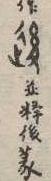 作後並釋後篆